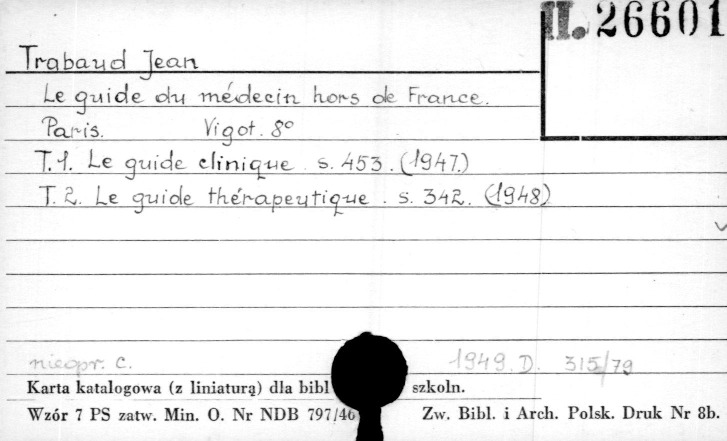 II. 26601
Trabaud Jean
Le guide du médecin hors de France.
Paris. Vigot. 8°
T. 1. Le guide clinique. s. 453. (1947.)
T. 2. Le guide thérapeutique. s. 342. (1948)
nieopr. c. 1949. D. 315/79
Karta katalogowa (z liniaturą) dla bibl szkoln.
Wzór 7 PS zatw. Min. O. Nr NDB 797/46 Zw. Bibl. i Arch. Polsk. Druk Nr 8b.